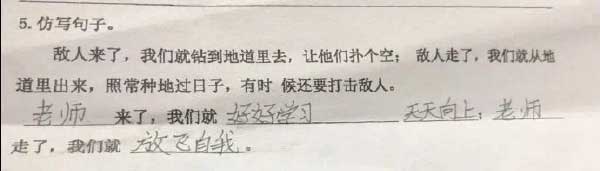 5. 仿写句子。
敌人来了，我们就钻到地道里去，让他们扑个空；敌人走了，我们就从地
道里出来，照常种地过日子，有时 候还要打击敌人。
老师 来了，我们就 好好学习 天天向上；老师
走了，我们就 放飞自我。